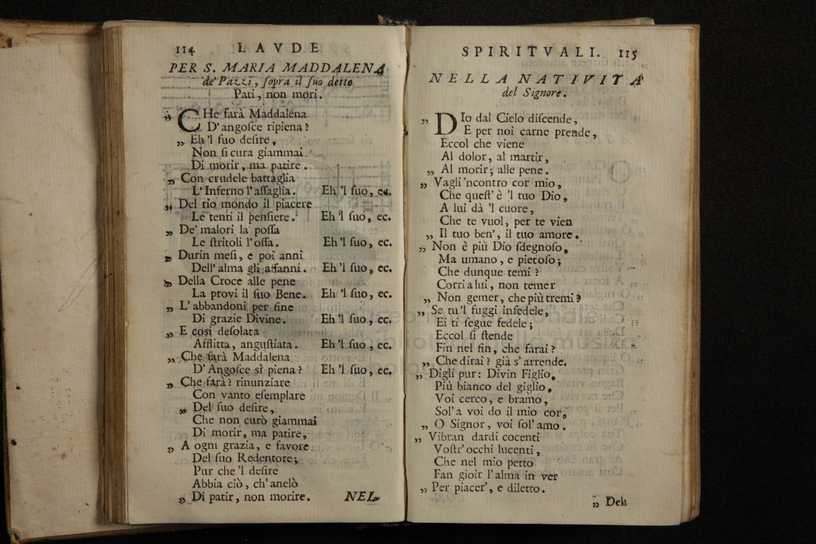 114 LAVDE
PER S. MARIA MADDALENA
de' Pazzi, ſopra il ſuo detto
Pati, non mori.
„ CHe farà Maddalena
D'angoſce ripiena?
„ Eh 'l ſuo deſire,
Non ſi cura giammai
Di morir, ma patire.
„ Con crudele battaglia
L'Inferno l'aſſaglia. Eh 'l ſuo, ec.
„ Del rio mondo il piacere
Le tenti il penſiere. Eh 'l ſuo, ec.
„ De' malori la poſſa
Le ſtritoli l'oſſa. Eh 'l ſuo, ec.
„ Durin meſi, e poi anni
Dell'alma gli affanni. Eh 'l ſuo, ec.
„ Della Croce alle pene
La provi il ſuo Bene. Eh 'l ſuo, ec.
„ L'abbandoni per fine
Di grazie Divine. Eh 'l ſuo, ec.
„ E così deſolata
Afflitta, anguſtiata. Eh 'l ſuo, ec.
„ Che farà Maddalena
D'Angoſce sì piena? Eh 'l ſuo, ec.
„ Che farà? rinunziare
Con vanto eſemplare
„ Del ſuo deſire,
Che non curò giammai
Di morir, ma patire,
„ A ogni grazia, e favore
Del ſuo Redentore;
Pur che 'l deſire
Abbia ciò, ch'anelò
„ Di patir, non morire. NEL-
SPIRITVALI. 115
NELLA NATIVITÀ
del Signore.
„ DIo dal Cielo diſcende,
E per noi carne prende,
Eccol che viene
Al dolor, al martir,
„ Al morir; alle pene.
„ Vagli'ncontro cor mio,
Che queſt'è 'l tuo Dio,
A lui dà 'l cuore,
Che te vuol, per te vien
„ Il tuo ben', il tuo amore.
„ Non è più Dio ſdegnoſo,
Ma umano, e pietoſo;
Che dunque temi?
Corri a lui, non temer
„ Non gemer, che più tremi?
„ Se tu 'l fuggi infedele,
Ei ti ſegue fedele;
Eccol ſi ſtende
Fin nel fin, che farai?
„ Che dirai? già s'arrende.
„ Digli pur: Divin Figlio,
Più bianco del giglio,
Voi cerco, e bramo,
Sol'a voi do il mio cor,
„ O Signor, voi ſol'amo.
„ Vibran dardi cocenti
Voſtr'occhi lucenti,
Che nel mio petto
Fan gioir l'alma in ver
„ Per piacer', e diletto.
„ Deh